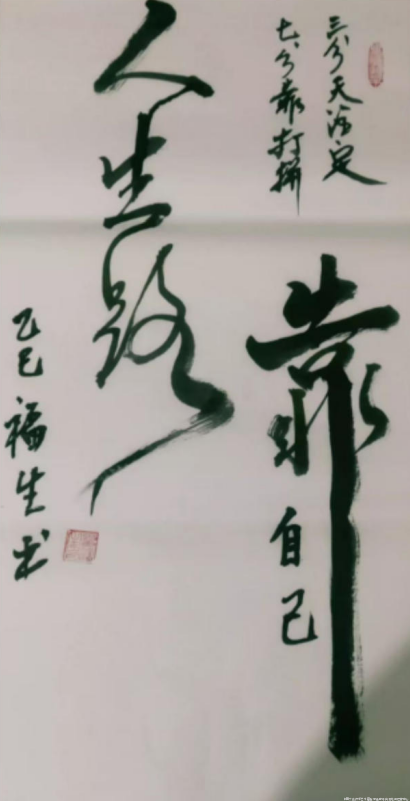 三分天注定
七分靠打拼
靠
自己
人生路
乙巳福生书